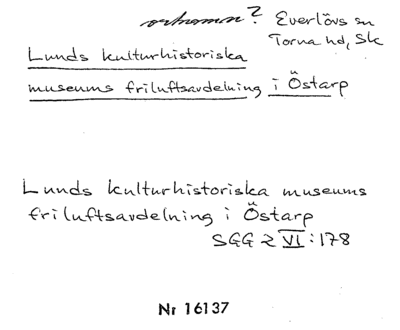 ortnamn? Everlövs sn
Torna hd, Sk
Lunds kulturhistoriska
museums friluftsavdelning i Östarp
Lunds kulturhistoriska museums
friluftsavdelning i Östarp
SGG 2 VI:178
Nr 16137